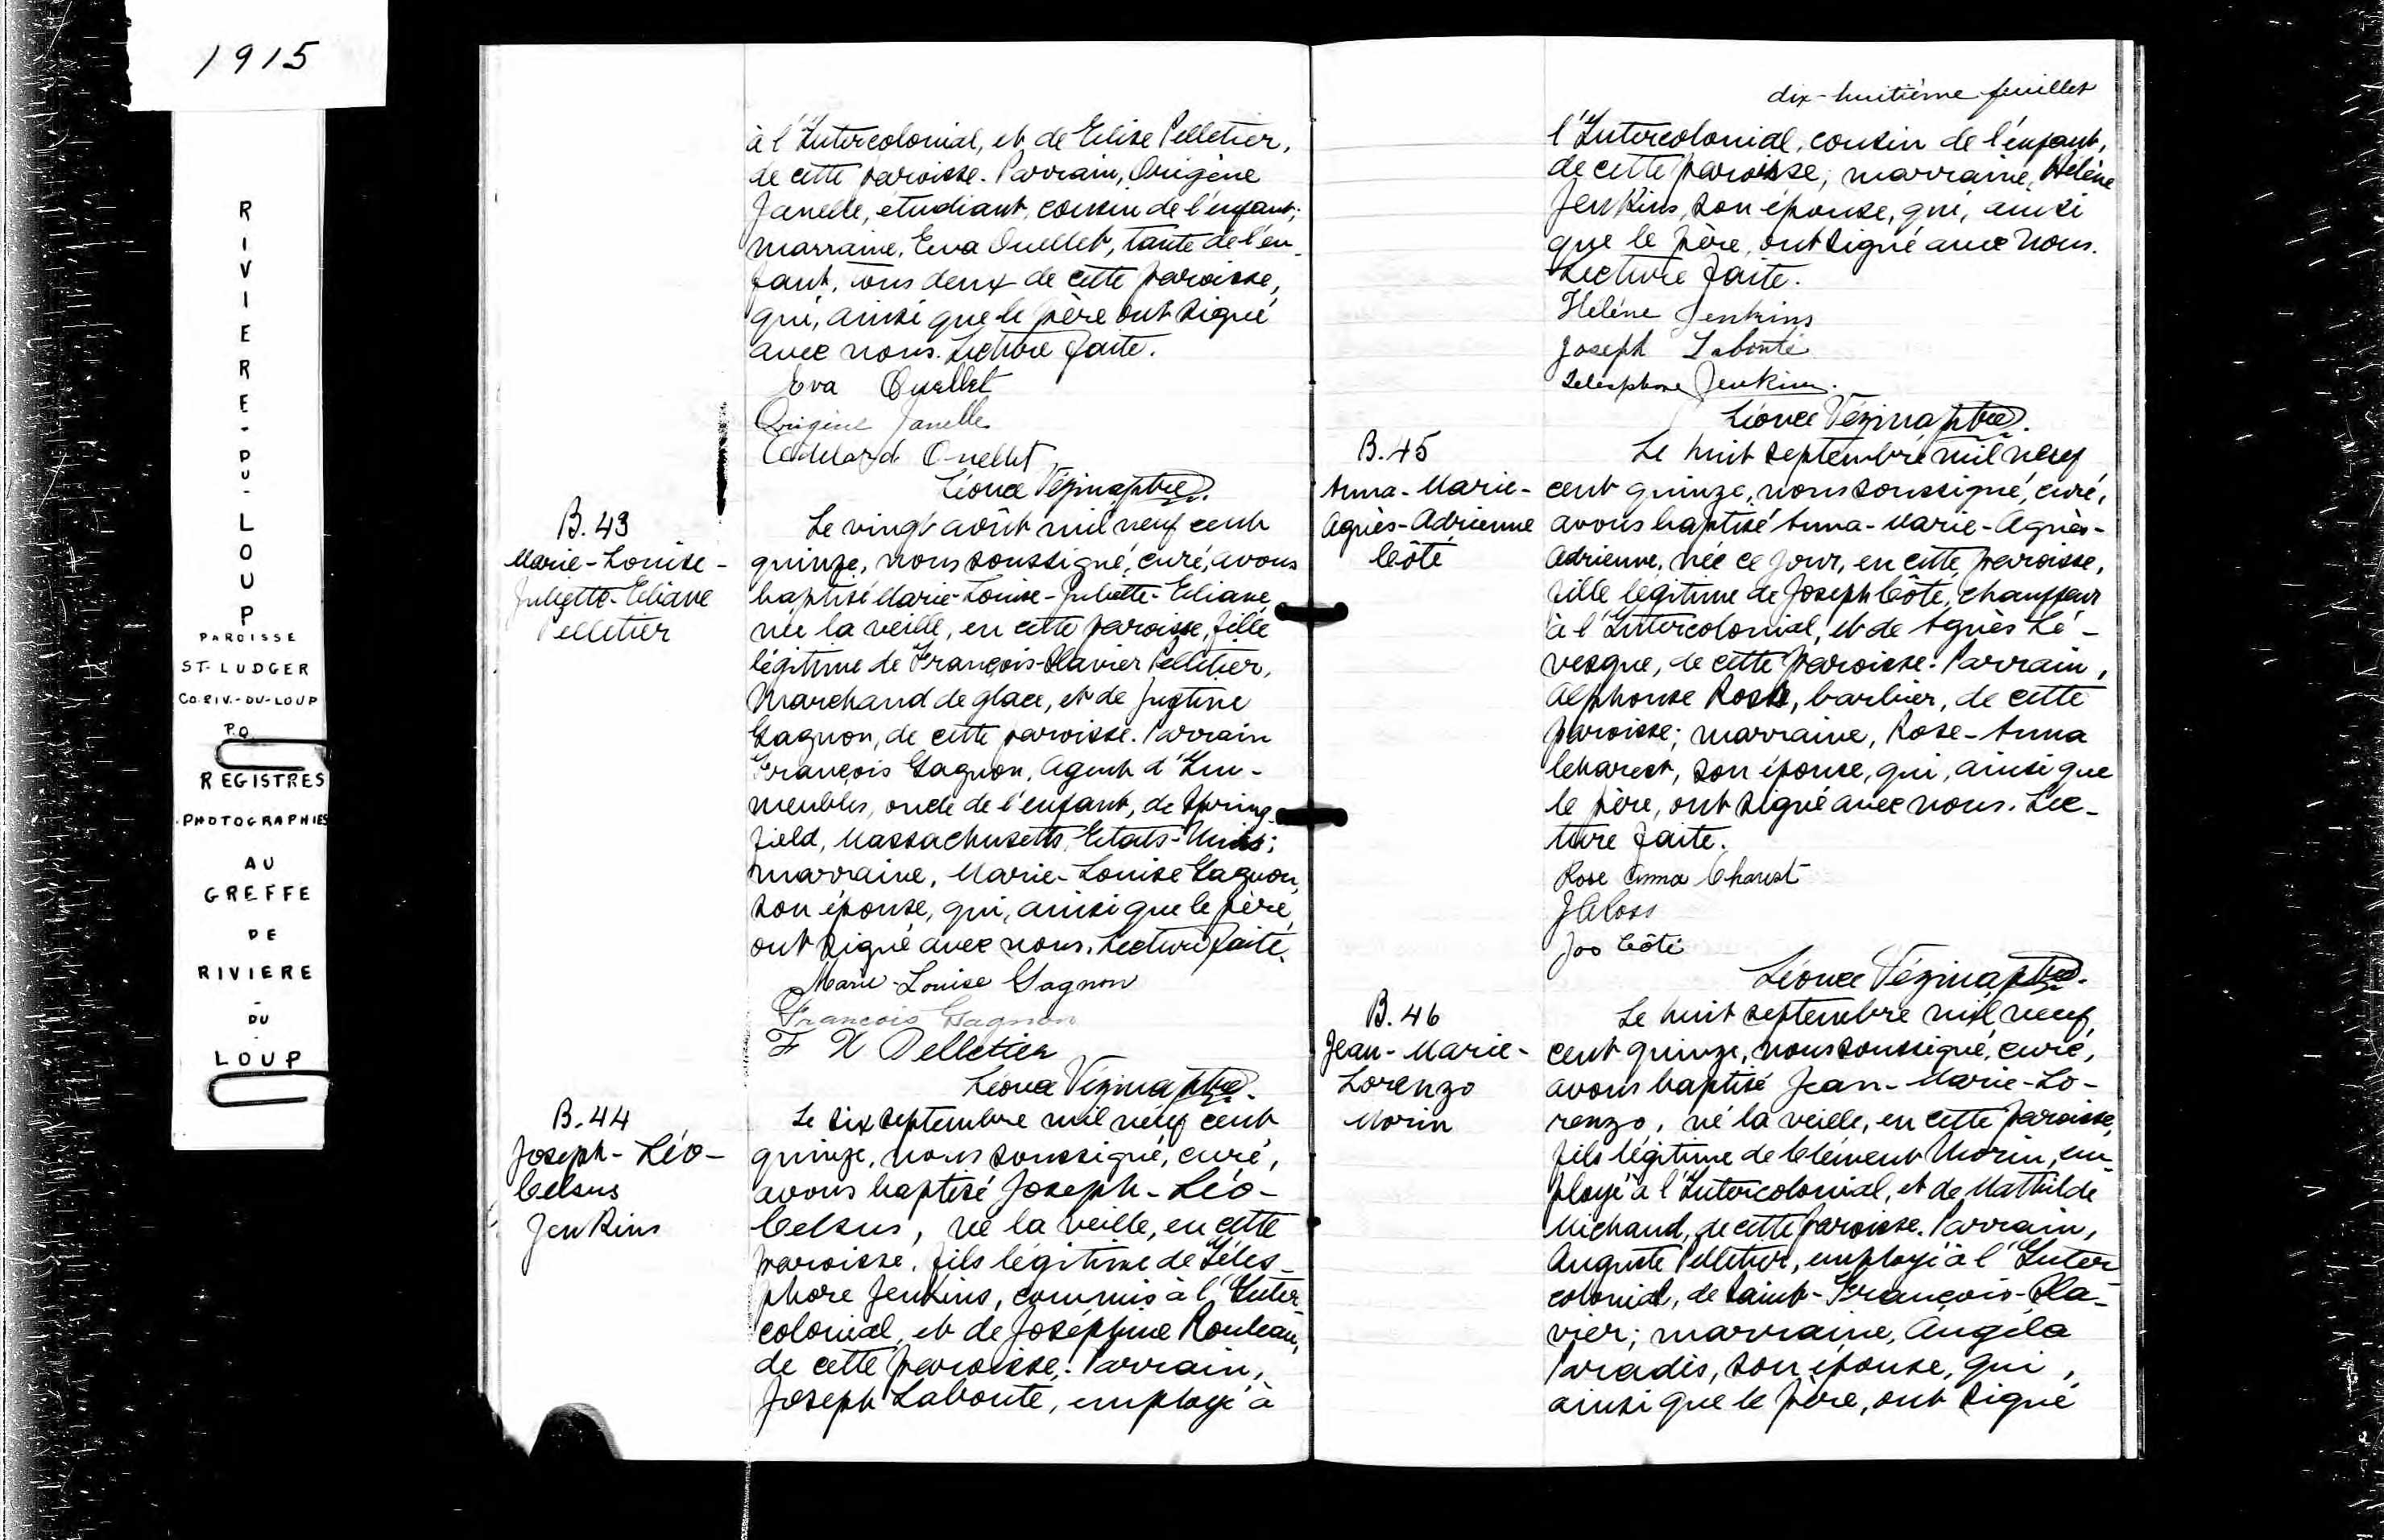 1915
RIVIERE-DU-LOUP
PAROISSE
ST-LUDGER
CO. RIV.-DU-LOUP
P.Q.
REGISTRES
PHOTOGRAPHIES
AU
GREFFE
DE
RIVIERE
-
DU
-
LOUP
à l'Intercolonial, et de Elise Pelletier,
de cette paroisse. Parrain, Origène
Janelle, etudiant, cousin de l'enfant;
marraine, Eva Ouellet, tante de l'en-
fant, tous deux de cette paroisse,
qui, ainsi que le père ont signé
avec nous. Lecture faite.
Eva Ouellet
Origène Janelle
Adélard Ouellet
Léonce Vézina ptre.
B.43
Marie-Louise-
Juliette-Eliane
Pelletier
Le vingt août mil neuf cent
quinze, nous soussigné, curé, avons
baptisé Marie-Louise-Juliette-Eliane,
née la veille, en cette paroisse, fille
légitime de François-Xavier Pelletier,
Marchand de glace, et de Justine
Gagnon, de cette paroisse. Parrain
François Gagnon, Agent d'Im-
meubles, oncle de l'enfant, de Spring-
field, Massachusetts, Etats-Unis;
marraine, Marie-Louise Gagnon,
son épouse, qui, ainsi que le père,
ont signé avec nous. Lecture faite.
Marie-Louise Gagnon
François Gagnon
F X Pelletier
Léonce Vézina ptre.
B.44
Joseph-Léo-
Celsus
Jenkins
Le six septembre mil neuf cent
quinze, nous soussigné, curé,
avons baptisé Joseph-Léo-
Celsus, né la veille, en cette
paroisse, fils légitime de Téles-
phore Jenkins, commis à l'Inter-
colonial, et de Joséphine Rouleau,
de cette paroisse. Parrain,
Joseph Labonté, employé à
dix-huitième feuillet
l'Intercolonial, cousin de l'enfant,
de cette paroisse; marraine, Hélène
Jenkins, son épouse, qui, ainsi
que le père, ont signé avec nous.
Lecture faite.
Hélène Jenkins
Joseph Labonté
Télesphore Jenkins.
Léonce Vézina ptre.
B.45
Anna-Marie-
Agnès-Adrienne
Côté
Le huit septembre mil neuf
cent quinze, nous soussigné, curé,
avons baptisé Anna-Marie-Agnès-
Adrienne, née ce jour, en cette paroisse,
fille légitime de Joseph Côté, chauffeur
à l'Intercolonial, et de Agnès Lé-
vesque, de cette paroisse. Parrain,
Alphonse Ross, barbier, de cette
paroisse; marraine, Rose-Anna
Charest, son épouse, qui, ainsi que
le père, ont signé avec nous. Lec-
ture faite.
Rose Anna Charest
J A Ross
Jos Côté
Léonce Vézina ptre.
B.46
Jean-Marie-
Lorenzo
Morin
Le huit septembre mil neuf
cent quinze, nous soussigné, curé,
avons baptisé Jean-Marie-Lo-
renzo, né la veille, en cette paroisse,
fils légitime de Clément Morin, em-
ployé à l'Intercolonial, et de Mathilde
Michaud, de cette paroisse. Parrain,
Auguste Pelletier, employé à l'Inter
colonial, de Saint-François-Xa-
vier; marraine, Angéla
Paradis, son épouse, qui,
ainsi que le père, ont signé